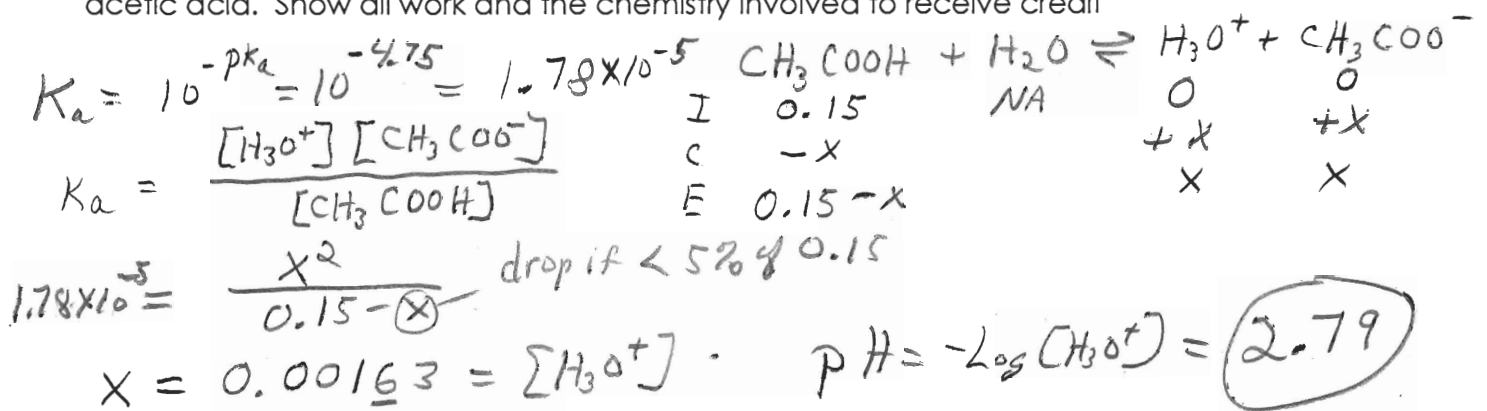 acetic acid. Show all work and the chemistry involved to receive credit
Ka = 10^-pka = 10^-4.75 = 1.78X10^-5 CH3COOH + H2O ⇌ H3O+ + CH3COO-
I 0.15 NA 0 0
Ka = [H3O+][CH3COO-] / [CH3COOH]
C -X +X +X
E 0.15-X X X
1.78X10^-5 = X^2 / 0.15-X drop if < 5% of 0.15
X = 0.00163 = [H3O+]. pH = -Log[H3O+] = 2.79